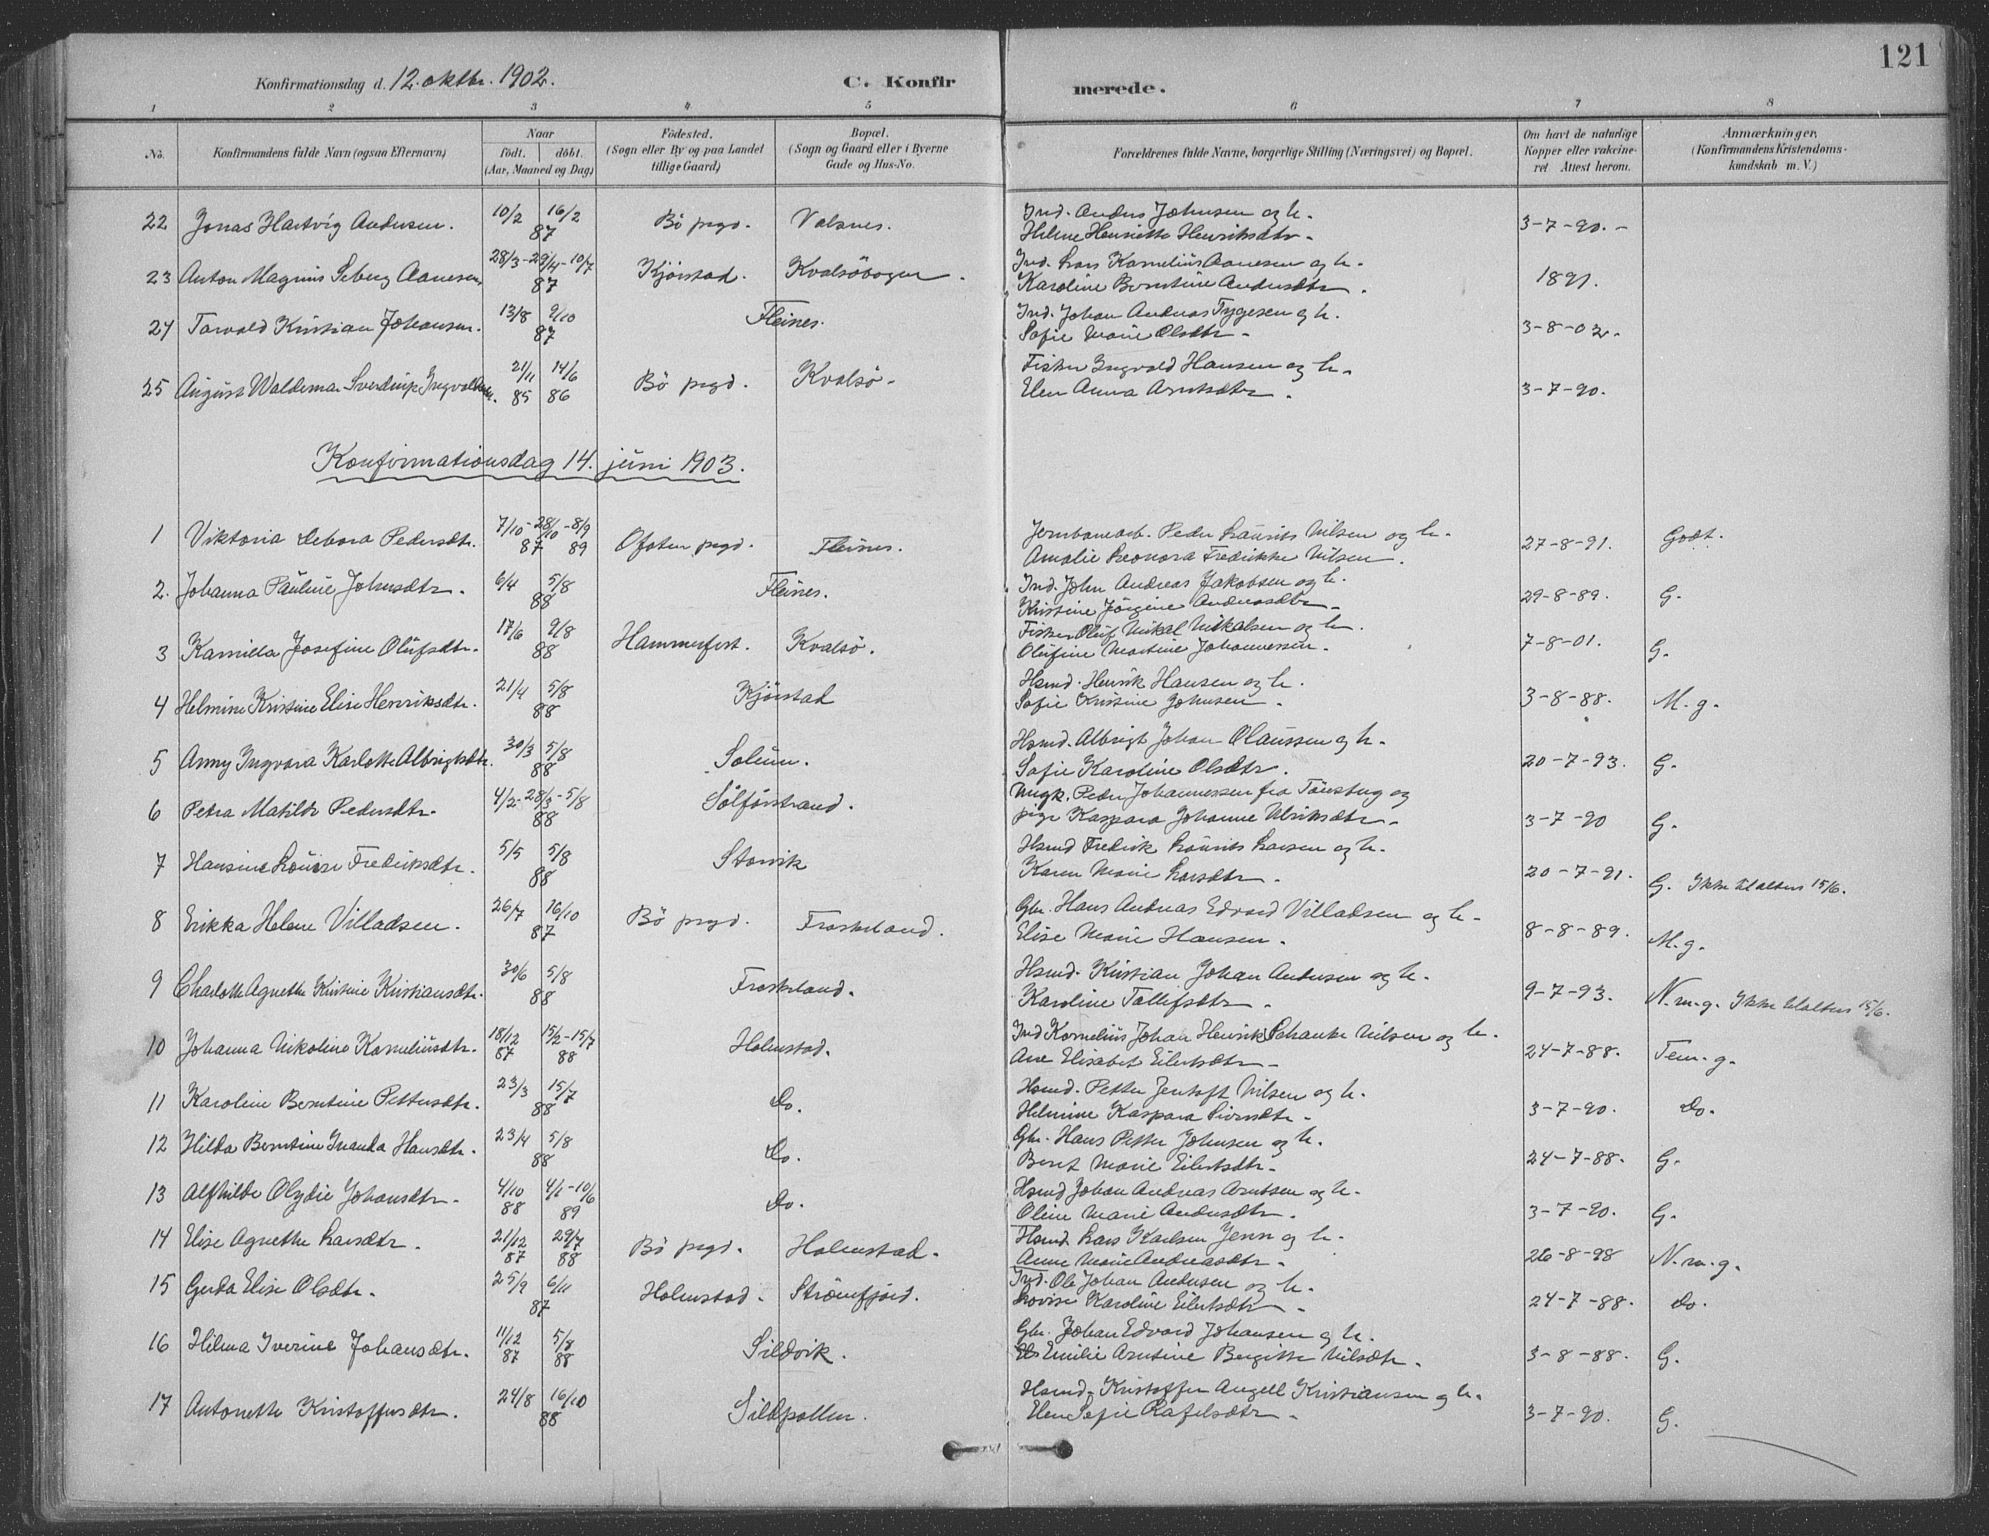 121
Konfirmationsdag d. 12. oktbr. 1902. C. Konfir merede.
1 2 3 4 5 6 7 8
No. Konfirmandens fulde Navn (ogsaa Efternavn) Naar født. døbt. (Aar, Maaned og Dag) Födested. (Sogn eller By og paa Landet tillige Gaard) Bopæl. (Sogn og Gaard eller i Byerne Gade og Hus-No. Forældrenes fulde Navne, borgerlige Stilling (Næringsvei) og Bopæl. Om havt de naturlige Kopper eller vakcineret Attest herom. Anmærkninger. (Konfirmandens Kristendomskundskab m. V.)
22 Jonas Hartvig Andersen. 10/2 16/2 87 Bö prgd. Valsnes. Ind. Anders Johnsen og h. Helene Henriette Henriksdtr. 3-7-90.-
23 Anton Magnus Seberg Aanesen. 28/3-29/4-10/7 87 Kjörstad. Kvalsöbogen. Ind. Lars Kornelius Aanesen og h. Karoline Berntine Andersdtr. 1891.
24 Torvald Kristian Johansen. 13/8 9/10 87 Fleines. Ind. Johan Andreas Tygesen og h. Sofie Marie Olsdtr. 3-8-02.
25 August Waldemar Sverdrup Ingvaldsen. 21/11 85 14/6 86 Bö prgd. Kvalsö. Fisker Ingvald Hansen og h. Elen Anna Arntsdtr. 3-7-90.
Konfirmationsdag 14. juni 1903.
1 Viktoria Debora Pedersdtr. 7/10-28/10-8/9 87 89 Ofoten prgd. Fleines. Jernbanearb. Peder Laurits Nilsen og h. Amalie Leonora Fredrikke Nilsen. 27-8-91. Godt.
2. Johanna Pauline Johnsdtr. 6/4 5/8 88 Fleines. Ind. John Andreas Jakobsen og h. Kristine Jörgine Andreasdtr. 29-8-89. G.
3 Kamilla Josefine Olufsdtr. 17/6 9/8 88 Hammerfest. Kvalsö. Fisker Oluf Mikal Mikalsen og h. Olufine Martine Johannessen. 7-8-01. G.
4 Helmine Kristine Elise Henriksdtr. 21/4 5/8 88 Kjörstad Hsmd. Henrik Hansen og h. Sofie Kristine Johnsen. 3-8-88. M.g.
5 Anny Ingvara Karlotte Albrigtsdtr. 30/3 5/8 88 Soleim. Hsmd. Albrigt Johan Olaussen og h. Sofie Karoline Olsdtr. 20-7-93. G.
6 Petra Matilde Pedersdtr. 4/2-28/3-5/8 88 Sölförstrand. Ungk. Peder Johannessen fra Tönsberg og pige Kaspara Johanne Ulriksdtr. 3-7-90 G.
7 Hansine Lovise Fredriksdtr. 5/5 5/8 88 Storvik Hsmd Fredrik Laurits Larsen og h. Karen Marie Larsdtr. 20-7-91. G. Ikke tilalters 15/6.
8 Erikka Helene Villadsen. 26/7 16/10 87 Bö prgd. Froskeland. Gbr. Hans Andreas Edvard Villadsen og h. Elise Marie Hansen. 8-8-89. M.g.
9 Charlotte Agnethe Kristine Kristiansdtr. 30/6 5/8 88 Froskeland. Hsmd. Kristian Johan Andersen og h. Karoline Tollefsdtr. 9-7-93. N.m.g. Ikke tilalters 15/6.
10 Johanna Nikoline Korneliusdtr. 18/12 87 15/2-15/7 88 Holmstad. Ind Kornelius Johan Henrik Schanke Nilsen og h. Ane Elisabet Eilertsdtr. 24-7-88. Tem. g.
11 Karoline Berntine Pettersdtr. 23/3 15/7 88 Do. Hsmd. Petter Jentoft Nilsen og h. Helmine Kaspara Sivertsdtr. 3-7-90. Do.
12 Hilda Berntine Inanda Hansdtr. 23/4 5/8 88 Do. Gbr. Hans Petter Johnsen og h. Beret Marie Eilertsdtr. 24-7-88. G.
13 Alfhilde Olydie Johansdtr. 4/10 88 4/1-10/6 89 Do. Hsmd Johan Andreas Arntsen og h. Oline Marie Andersdtr. 3-7-90. G.
14 Elise Agnethe Larsdtr. 21/12 87 29/7 88 Bö prgd. Holmstad. Hsmd Lars Karlsen Jenn og h. Anne Marie Andreasdtr. 26-8-98 N.m.g.
15 Gerda Elise Olsdtr. 25/9 6/11 87 Holmstad. Strømfjord. Ind. Ole Johan Andersen og h. Lovise Karoline Eilertsdtr. 24-7-88. Do.
16 Hilma Iverine Johansdtr. 11/12 87 5/8 88 Sildvik. Gbr. Johan Edvard Johansen og h. Emilie Arntine Bergitte Nilsdtr. 3-8-88. G.
17 Antonette Kristoffersdtr. 24/8 16/10 88 Sildpollen. Hsmd. Kristoffer Angell Kristiansen og h. Elen Sofie Rafelsdtr. 3-7-90. G.